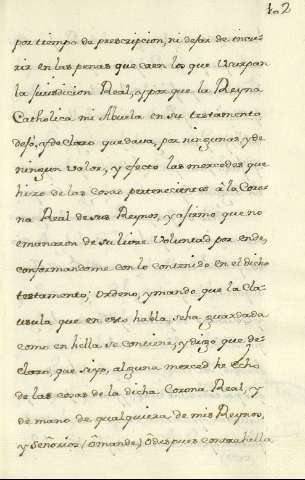 102
por tiempo de prescripcion, ni dejar de incu-
rir en las penas que caen los que Usurpan
la juridicion Real, y por que la Reyna
Catholica mi Abuela en su testamento
dejó, y declaro quedava, por ningunas, y de
ningun valor, y efecto las mercedes que
hizo de las cosas pertenecientes à la Coro
na Real de sus Reynos, y afirmo que no
emanaron de su libre Voluntad por ende,
conformandome con lo contenido en el dicho
testamento; Ordeno, y mando que la Cla-
usula que en esto habla, seha guardada
como en hella se contiene, y digo que de-
claro, que si yo, alguna merced he Echo
de las cosas de la dicha Corona Real, y
de mano de qualquiera de mis Reynos,
y Señorios (ò mande) ò despues contra hella